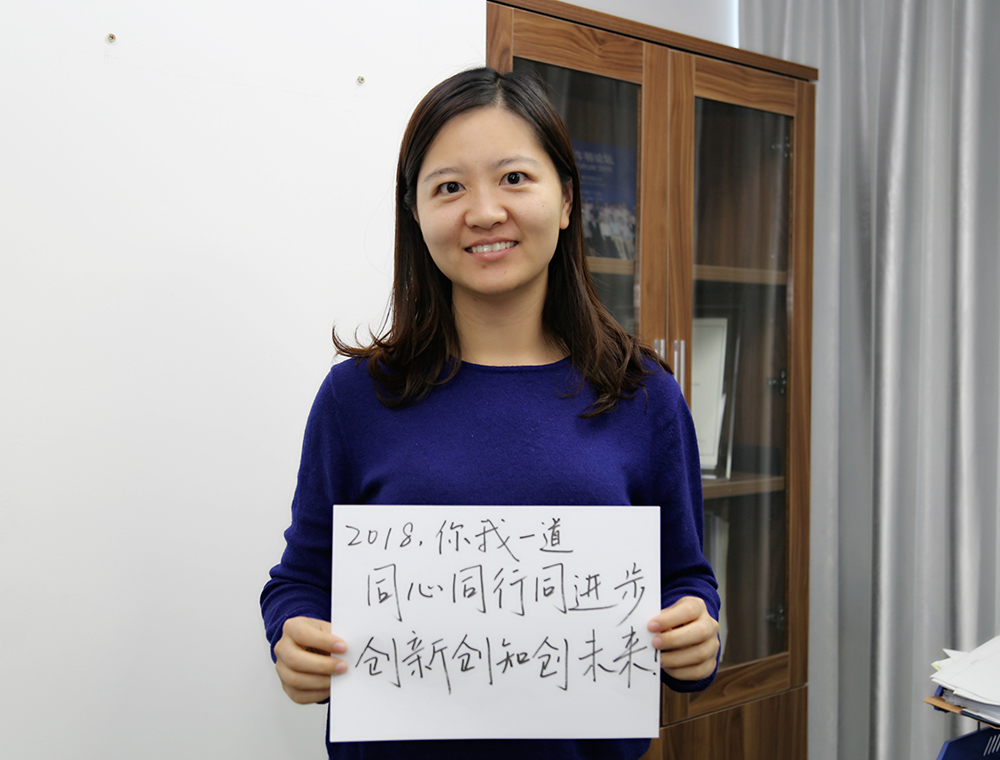 2018,你我一道
同心同行同进步
创新创知创未来!